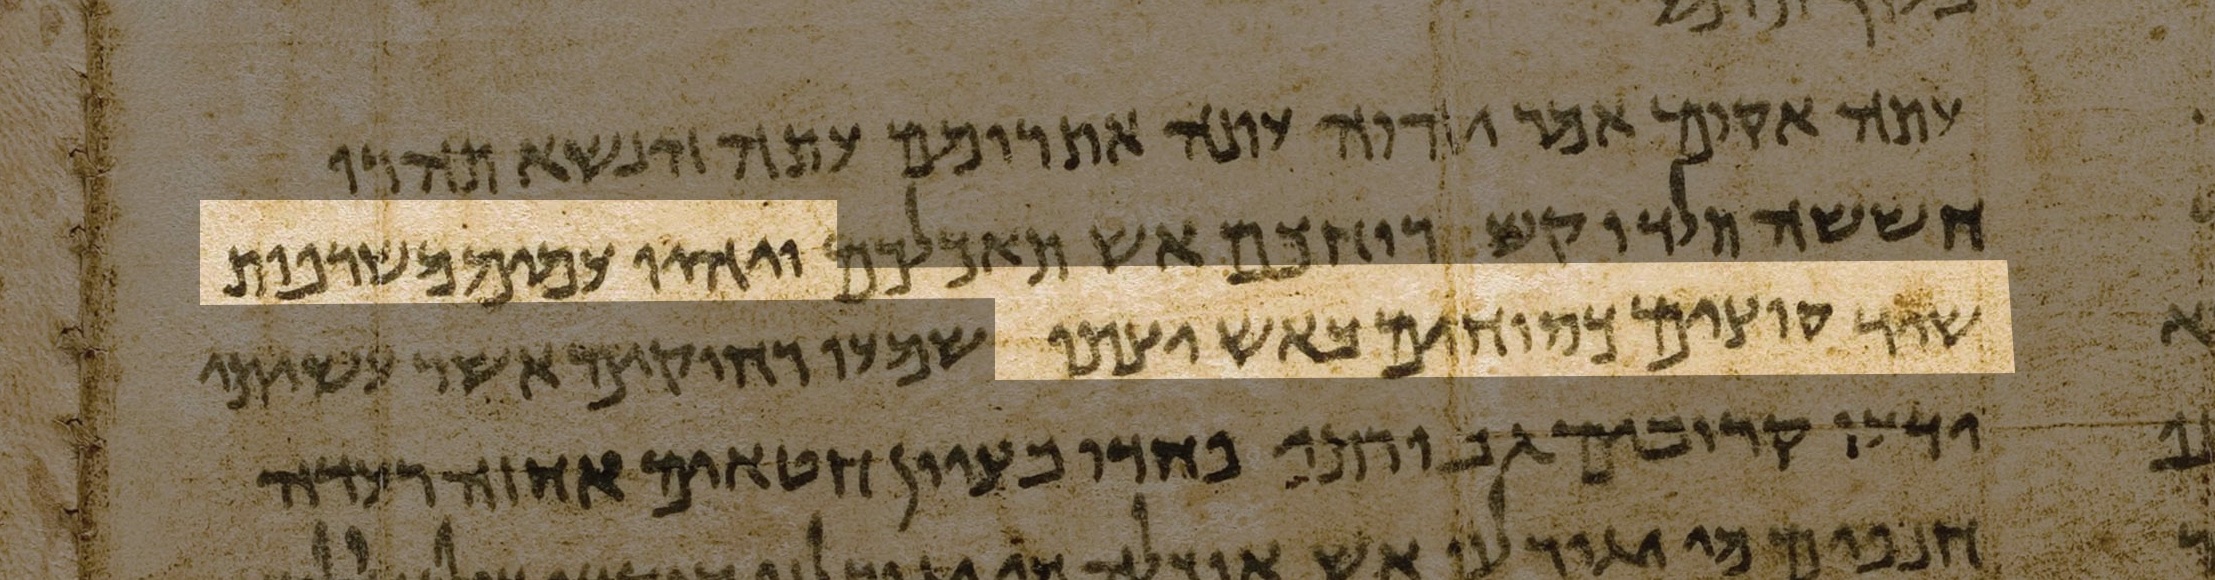 עתה אקום אמר יהוה עתה אתרומם עתה אנשא תהרו
חששה תלדו קש רוחכם אש תאכלכם והיו עמים משרפות
שיד קוצים כסוחים באש יצתו שמעו רחוקים אשר עשיתי
ידעו קרובים גבורתי פחדו בציון חטאים אחזה רעדה
חנפים מי יגור לנו אש אוכלה מי יגור לנו